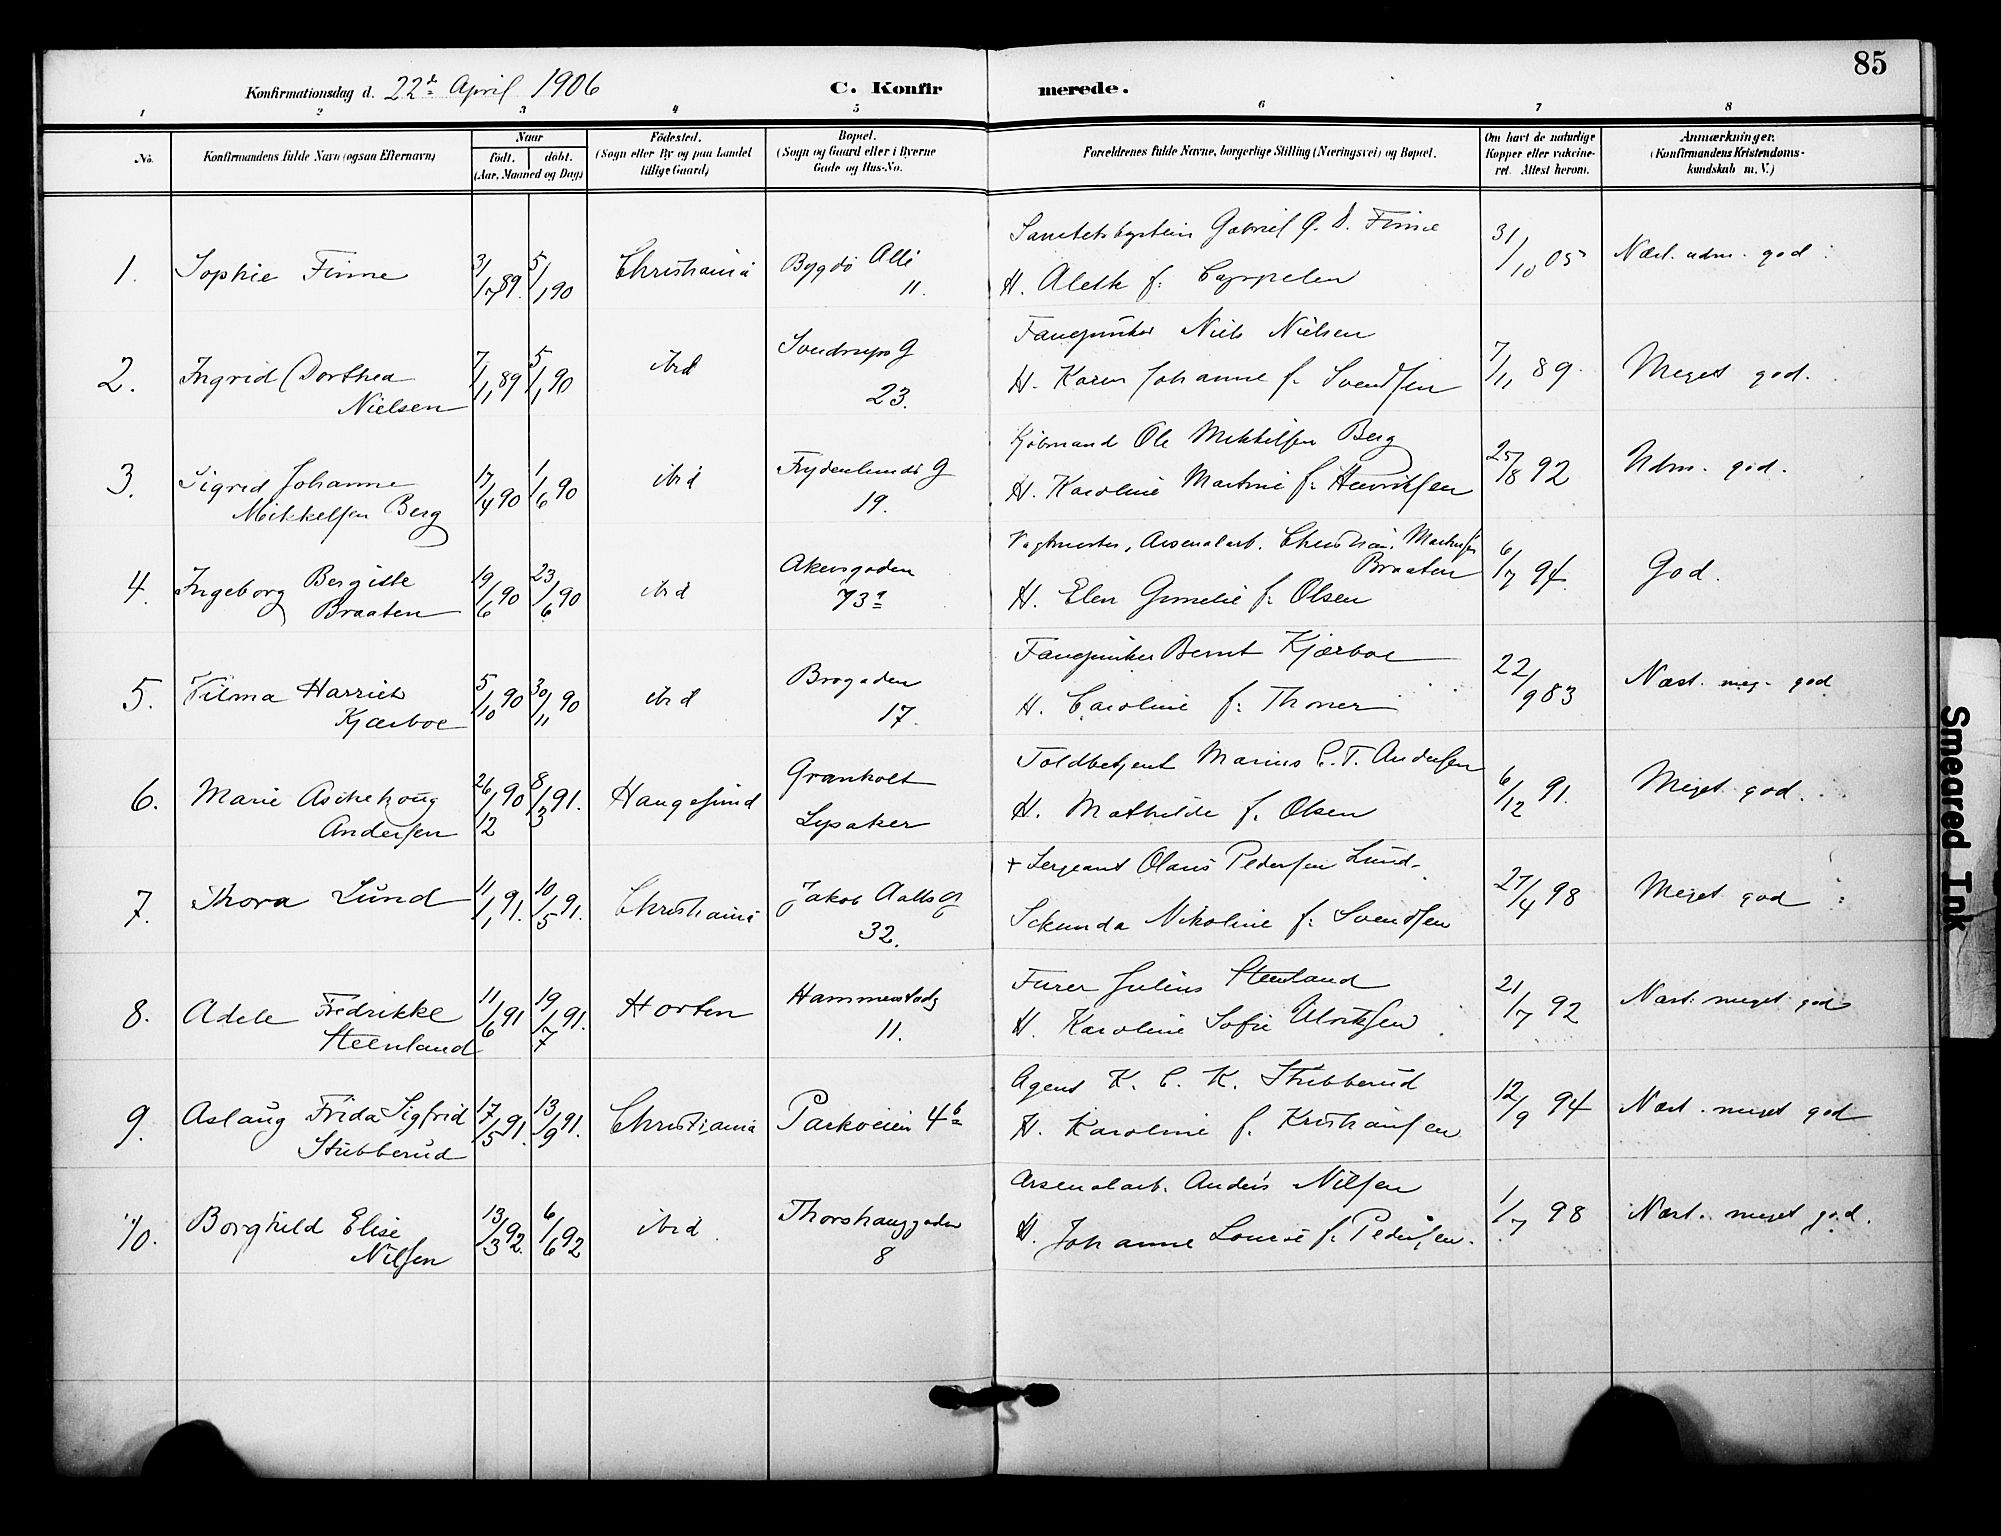 85
Konfirmationsdag d. 22de April 1906 C. Konfirmerede.
1 2 3 4 5 6 7 8
No. Konfirmandens fulde Navn (ogsaa Efternavn) Naar født. døbt. (Aar, Maaned og Dag) Födested. (Sogn eller By og paa Landet tillige Gaard) Bopæl. (Sogn og Gaard eller i Byerne Gade og Hus-No. Forældrenes fulde Navne, borgerlige Stilling (Næringsvei) og Bopæl. Om havt de naturlige Kopper eller vakcineret. Attest herom. Anmærkninger. (Konfirmandens Kristendomskundskab m. V.)
1. Sophie Finne 31/7 89. 5/1 90 Christiania Bygdö Allé 11. Gabriel G. D. Finne
H. Aleth f. Cappelen 31/10 05 Næst. udm. god
2. Ingrid Dorthea Nielsen 7/1 89 5/1 90 ibid 23. Niels Nielsen
H. Karen Johanne f. Svendsen 7/11 89 Meget god.
3. Sigrid Johanne Mikkelsen Berg 17/4 90 1/6 90 ibid Frydenlunds G 19. Kjöbmand Ole Mikkelsen Berg
H. Karoline Martine f. Henriksen 25/8 92 Udm. god.
4. Ingeborg Bergitte Braaten 19/6 90 23/6 90 ibid Akersgaden 73a Vagtmester, Arsenalarb. Christian Braaten
H. Elen f. Olsen 6/7 94 God.
5. Vilma Harriet Kjærboe 5/10 90 30/11 90 ibid Brogaden 17. Bernt Kjærboe
H. Caroline f. 22/9 83 Næst. meg. god
6. Marie Aschehoug Andersen 26/12 90 8/3 91. Haugesund Granholt Lysaker Toldbetjent Marius C. T. Andersen
H. Mathilde f. Olsen 6/12 91. Meget god.
7. Thora Lund 11/1 91. 10/5 91. Christiania Jakob Aalls G 32. + Sergeant Olaus Pedersen Lund
Sekunda Nikoline f. Svendsen 27/4 98 Meget god
8. Adele Fredrikke Steenland 11/6 91 19/7 91. Horten Hammerstadg 11. Furer Julius Steenland
H. Karoline Sofie Ulriksen 21/7 92 Næst. meget god
9. Aslaug Frida Sigfrid Stubberud 17/5 91. 13/9 91. Christiania Parkveien 4b Agent K. C. K. Stubberud
H. Karoline f. Kristiansen 12/9 94 Næst. meget god
10. Borghild Elise Nilsen 13/3 92. 6/6 92 ibid. Thorshauggaden 8 Arsenalarb. Anders Nilsen
H. Johanne Louise f. Pedersen. 1/7 98 Næst. meget god.
Smeared Ink